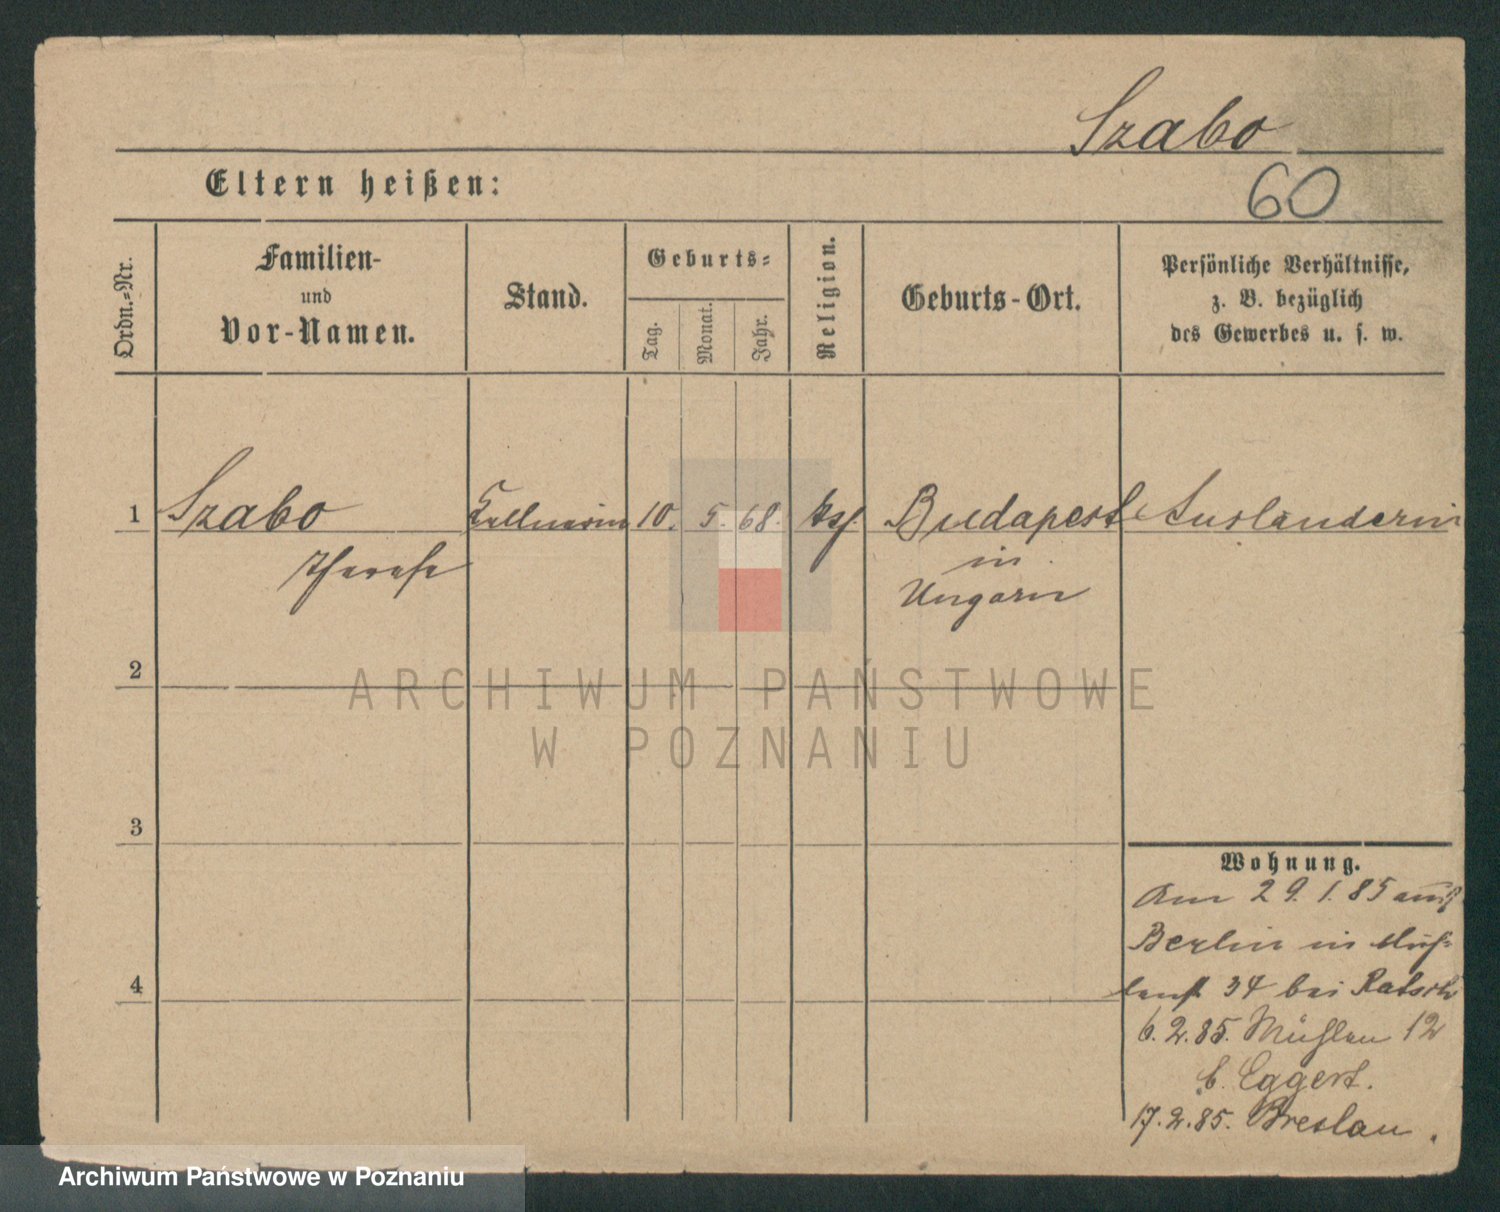 Szabo
Eltern heißen:
60
Ordn.=Nr.
Familien-
und
Vor-Namen.
Stand.
Geburts=
Tag.
Monat.
Jahr.
Religion.
Geburts-Ort.
Persönliche Verhältnisse,
z. B. bezüglich
des Gewerbes u. s. w.
1 Szabo Kellnerin 10. 5. 68. Budapest Ausländerin
Therese
in
Ungarn
2
ARCHIWUM PAŃSTWOWE
W POZNANIU
3
Wohnung.
Am 29.1.85 aus
Berlin in
34 bei Ratsch
4
6.2.85. Mühlen 12
b. Eggert.
17.2.85. Breslau.
Archiwum Państwowe w Poznaniu